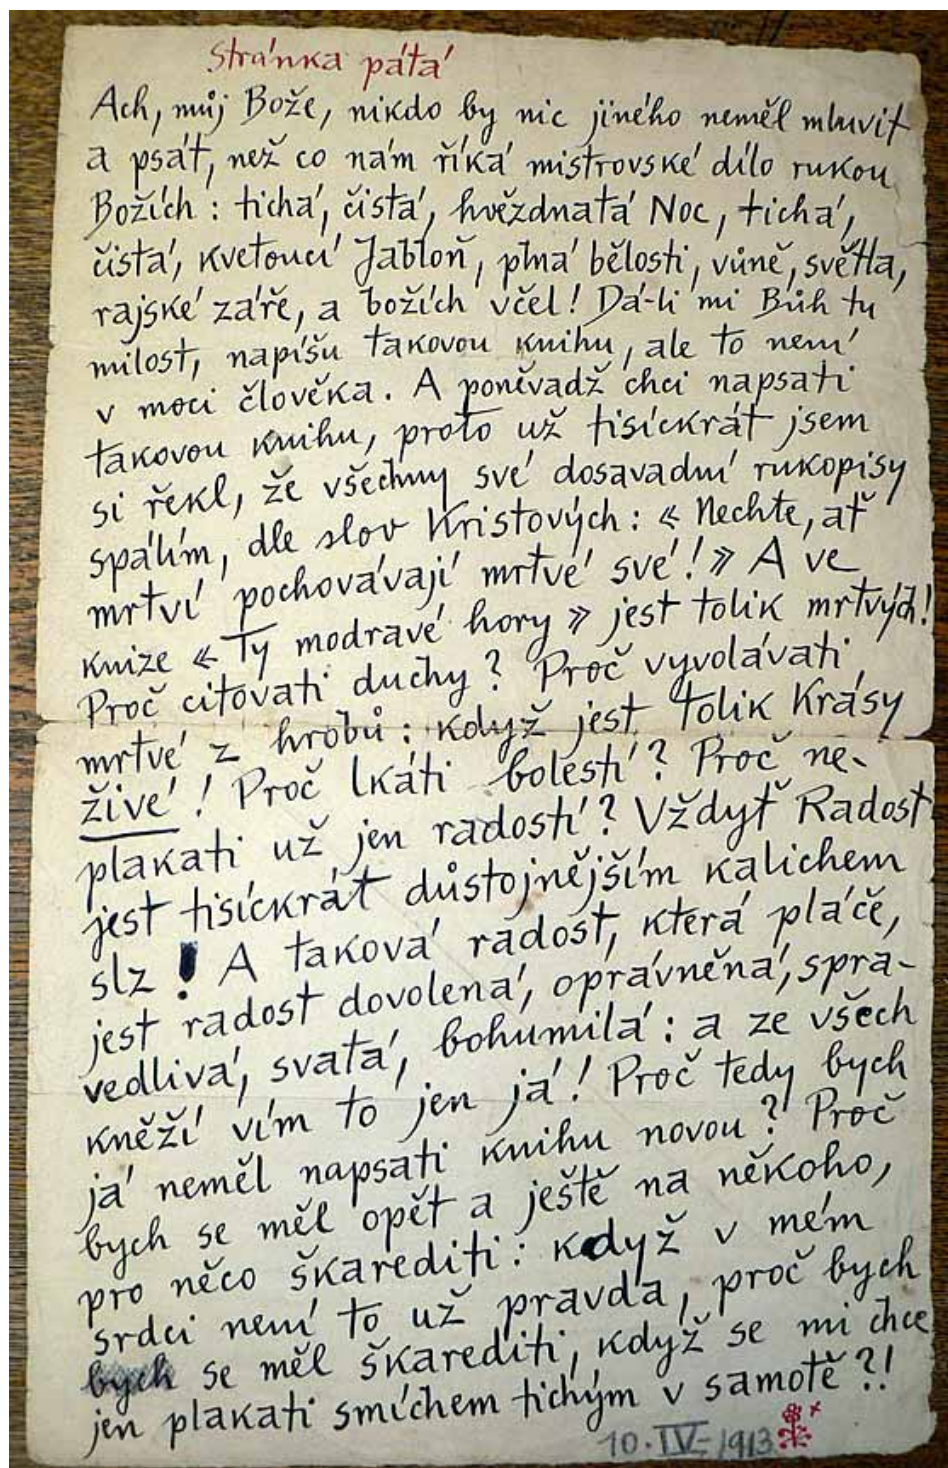 Stránka pátá
Ach, můj Bože, nikdo by nic jiného neměl mluvit
a psát, než co nám říká mistrovské dílo rukou
Božích : tichá, čistá, hvězdnatá Noc, tichá,
čistá, kvetoucí Jabloň, plná bělosti, vůně, světla,
rajské záře, a božích včel! Dá-li mi Bůh tu
milost, napíšu takovou knihu, ale to není
v moci člověka. A poněvadž chci napsati
takovou knihu, proto už tisíckrát jsem
si řekl, že všechny své dosavadní rukopisy
spálím, dle slov Kristových : « Nechte, ať
mrtví pochovávají mrtvé své! » A ve
knize « Ty modravé hory » jest tolik mrtvých!
Proč citovati duchy? Proč vyvolávati
mrtvé z hrobů : když jest tolik Krásy
živé! Proč lkáti bolestí? Proč ne-
plakati už jen radostí? Vždyť Radost
jest tisíckrát důstojnějším kalichem
slz! A taková radost, která pláče,
jest radost dovolená, oprávněná, spra-
vedlivá, svatá, bohumilá : a ze všech
kněží vím to jen já! Proč tedy bych
já neměl napsati knihu novou? Proč
bych se měl opět a ještě na někoho,
pro něco škarediti : když v mém
srdci není to už pravda, proč bych
bych se měl škarediti, když se mi chce
jen plakati smíchem tichým v samotě?!
10. IV - 1913